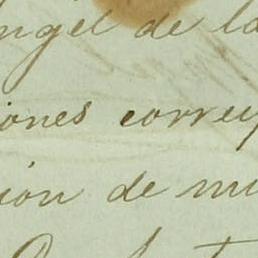 ngel de la
iones correy
ion de mu